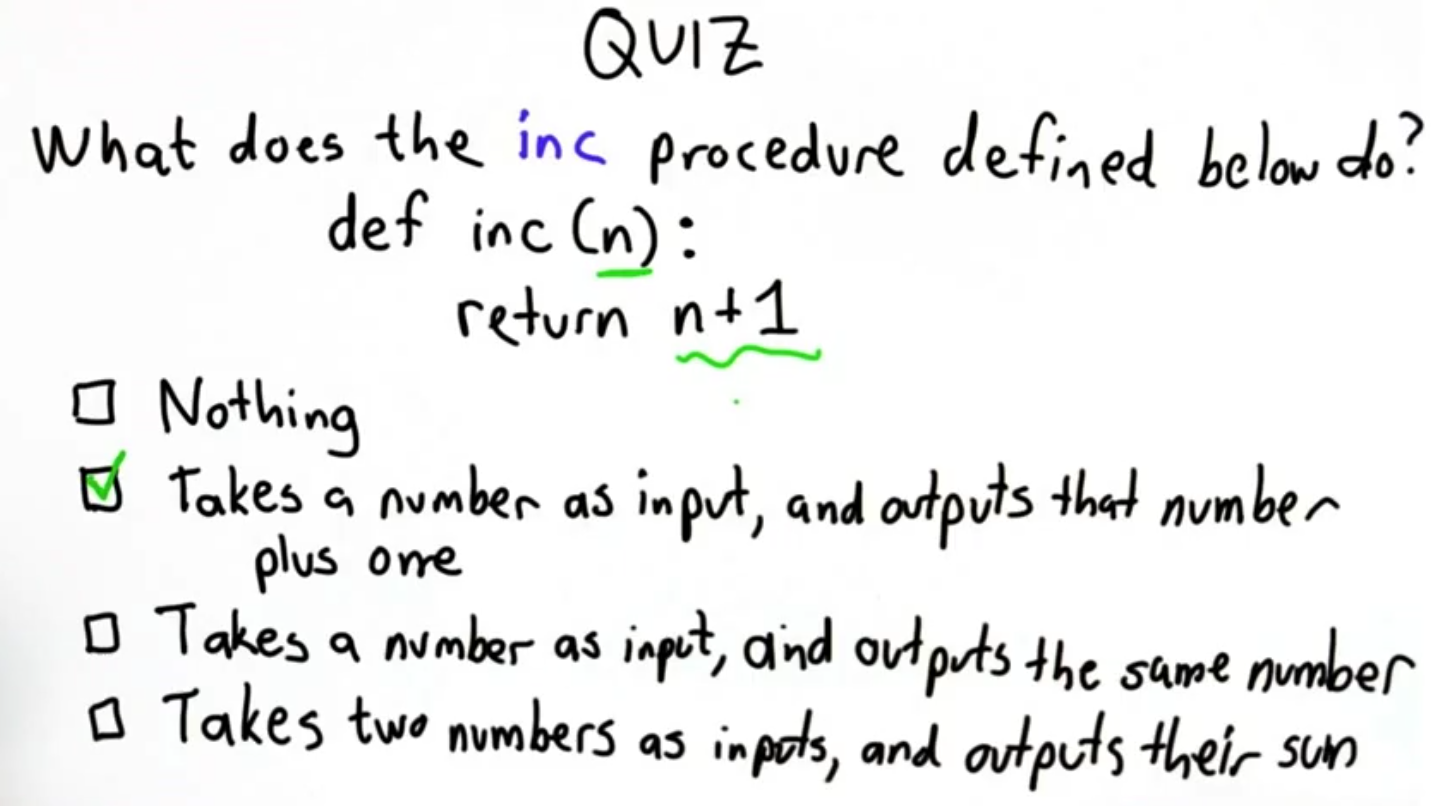 QUIZ
What does the inc procedure defined below do?
def inc (n):
return n+1
Nothing
Takes a number as input, and outputs that number
plus one
Takes a number as input, and outputs the same number
Takes two numbers as inputs, and outputs their sum